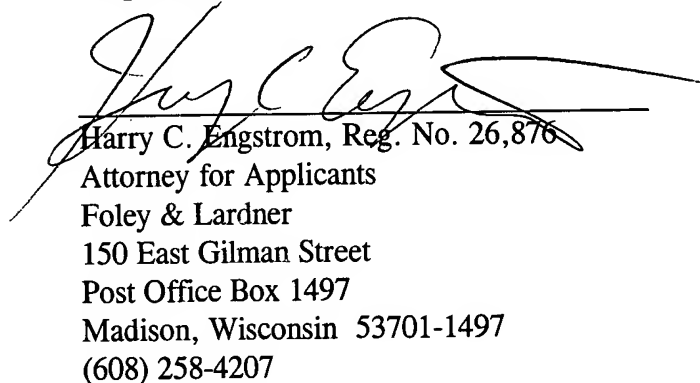 Harry C. Engstrom
Harry C. Engstrom, Reg. No. 26,876
Attorney for Applicants
Foley & Lardner
150 East Gilman Street
Post Office Box 1497
Madison, Wisconsin 53701-1497
(608) 258-4207